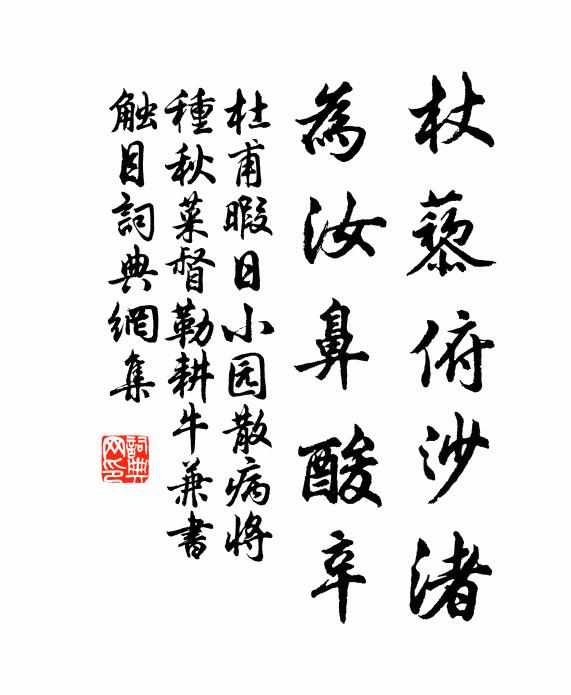 杖藜俯沙渚
為汝鼻酸辛
杜甫暇日小园散病将
種秋菜督勒耕牛兼書
触目詞典網集
詞典网印